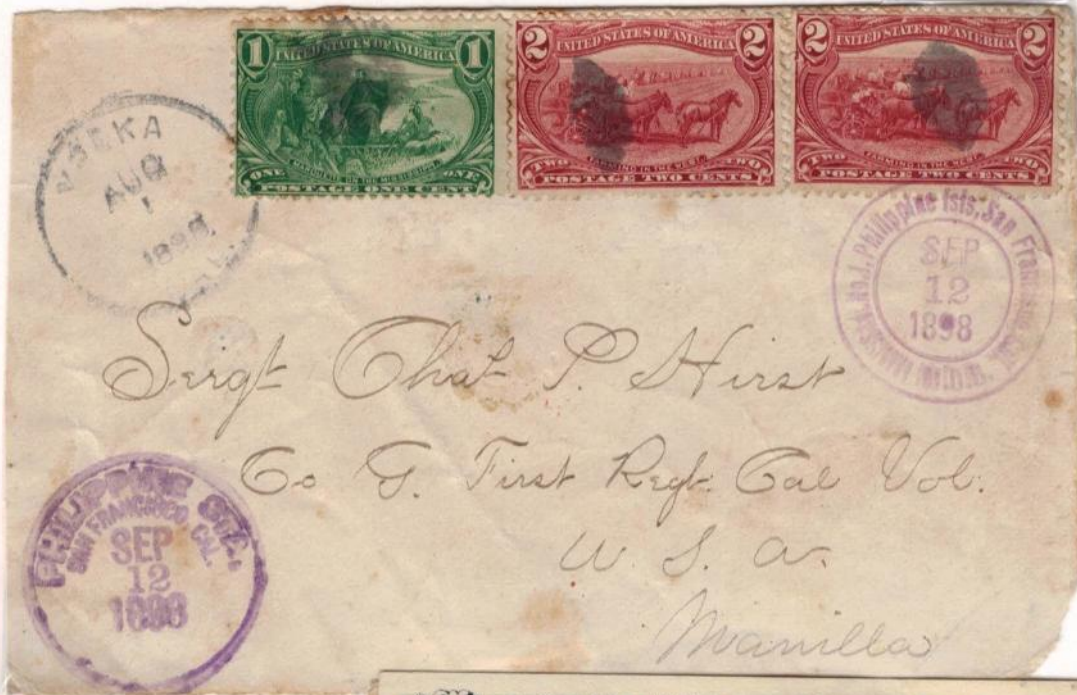 1 UNITED STATES OF AMERICA 1
ONE MARQUETTE ON THE MISSISSIPPI ONE
POSTAGE ONE CENT
2 UNITED STATES OF AMERICA 2
TWO FARMING IN THE WEST TWO
POSTAGE TWO CENTS
2 UNITED STATES OF AMERICA 2
TWO FARMING IN THE WEST TWO
POSTAGE TWO CENTS
AUG
1
1898
Philippine Isls, San Francisco
SEP
12
1898
Sergt Chat P. Hirst
Co G. First Regt. Cal Vol.
U. S. A.
Manilla
PHILIPPINE STA.
SAN FRANCISCO CAL.
SEP
12
1898